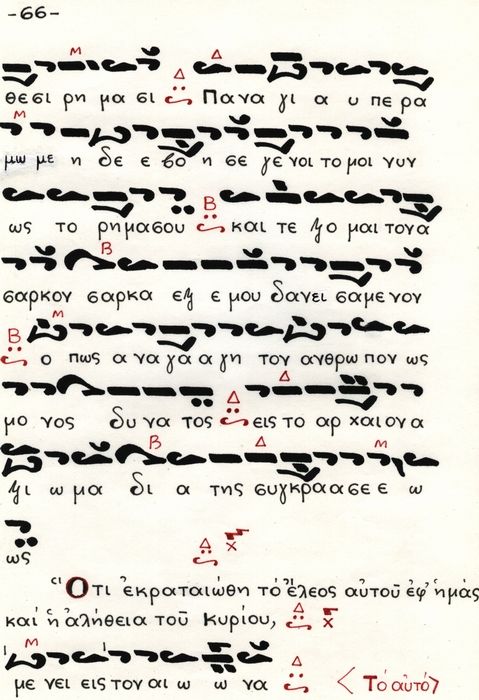 -66-
θεσι ρη μα σι Πανα γι α υ πε ρα
μω με η δε ε σο η σε γε νοι το μοι νυν
ως το ρημασου και τε ξο μαι τονα
σαρκον σαρκα εξ ε μου δανει σαμε νον
ο πως α να γα α γη τον ανθρω πον ως
μο νος δυ να τος εις το αρ χαιονα
ξι ω μα δι α της συγκραασε ε ω
ως
Ὅτι ἐκραταιώθη τὸ ἔλεος αὐτοῦ ἐφ' ἡμᾶς
καὶ ἡ ἀλήθεια τοῦ Κυρίου,
με νει εις τον αι ω ω να < Τὸ αὐτό>